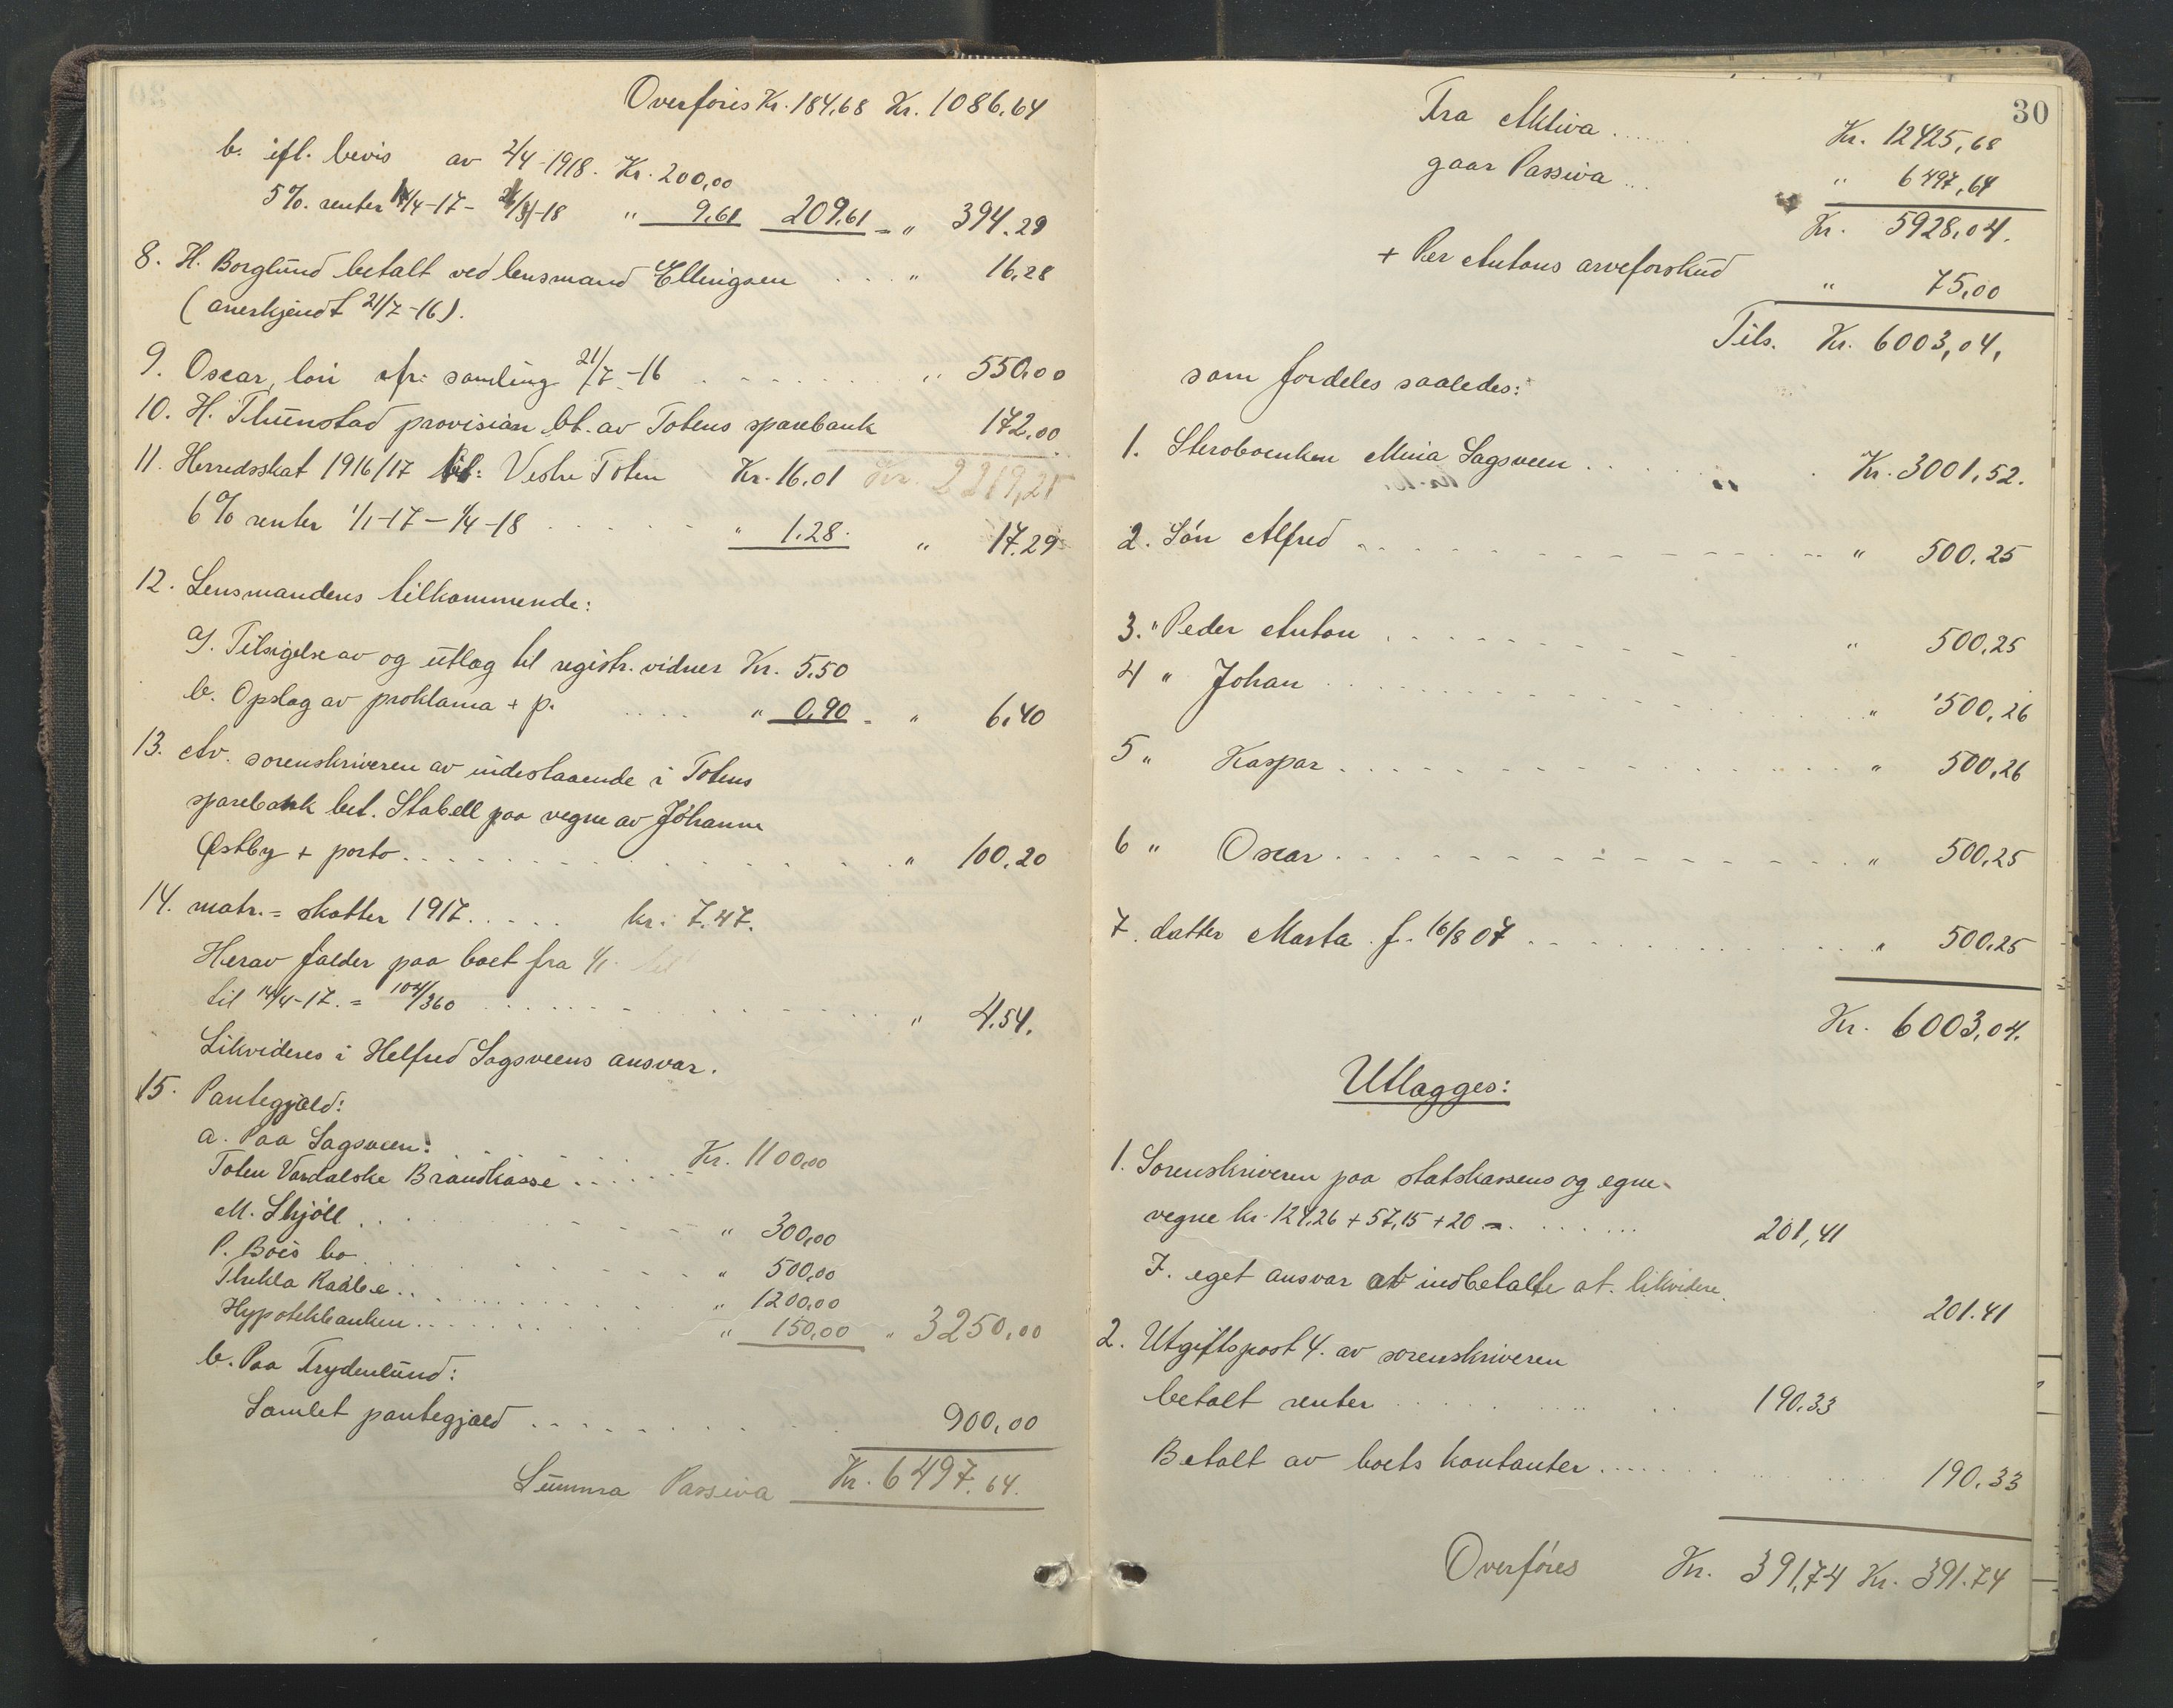 Overføres Kr. 184,68 Kr. 1086,64
b. ifl. bevis av 2/4-1918. Kr. 200,00
5% renter 14/4-17- -18 " 9,61 209,61 = " 394,29
8. H. Borglund betalt ved lensmand Ellingsen . . . " 16,28
(anerkjendt 21/7-16).
9. Oscar, lön efr. samling 21/7-16 . . . . . . . " 550,00
10. H. Thunstad provision bt. av Totens sparebank 172,00
11. Herredsskat 1916/17 til: Vestre Toten Kr. 16,01 Kr. 2219,25
6% renter 1/1-17-1/4-18 . . . . . " 1,28. " 17,29
12. Lensmandens tilkommende:
a). Tilsigelse av og utlag til registr. vidner Kr. 5,50
b. Opslag av proklama + p. . . . . " 0,90 = " 6,40
13. Av. sorenskriveren av indestaaende i Totens
sparebank bet. Stabell paa vegne av Johanne
Østby + porto . . . . . . . . . . . . " 100,20
14. matr.= skatter 1917. . . . . kr. 7,47.
Herav falder paa boet fra 1/1- til
til 14/4-17. = 104/360 . . . . . . . . . . " 4.54.
Likvideres i Helfred Sagsveens ansvar.
15. Pantegjæld:
a. Paa Sagsveen:
Toten Vardalske Brandkasse . . . . . . Kr. 1100,00
M. Skjöll . . . . . . . . " 300,00
P. Boes bo . . . . . . . . " 500,00
Thekla Raabe . . . . . . . . " 1200,00
Hypotekbanken . . . . . . . . " 150,00 " 3250,00
b. Paa Frydenlund:
Samlet pantegjæld . . . . . . . . . 900,00
Summa Passiva Kr. 6497.64.
30
Fra Aktiva . . . . . Kr. 12425,68
gaar Passiva . . . " 6497,64
Kr. 5928,04.
+ Per Antons arveforskud " 75,00
Tils. Kr. 6003,04,
som fordeles saaledes:
1. Sterboenken Mina Sagsveen . . . . . . Kr. 3001,52.
2. Sön Alfred . . . . . . . . . . . " 500,25
3. " Peder Anton . . . . . . . . . " 500,25
4 " Johan . . . . . . . . . . . " 500,26
5 " Kaspar . . . . . . . . . . . " 500,26
6 " Oscar . . . . . . . . . . . " 500,25
7. datter Marta f. 16/8 07 . . . . . . . . " 500,25
Kr. 6003,04.
Utlægges:
1. Sorenskriveren paa statskassens og egne
vegne kr. 124,26 + 57,15 + 20 = . . . . . . 201,41
I. eget ansvar at indbetalte at. likvidere.
201.41
2. Utgiftspost 4. av sorenskriveren
betalt renter . . . . . . . . 190.33
Betalt av boets kontanter . . . . . . . . 190.33
Overføres Kr. 391,74 Kr. 391.74